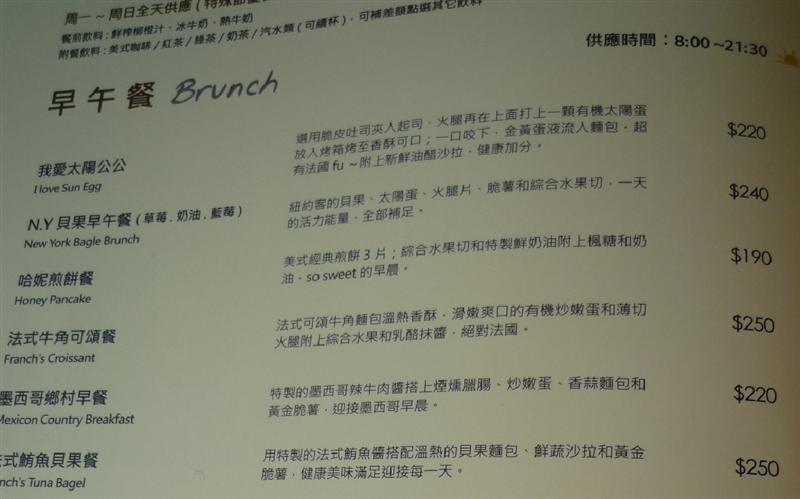 周一 ~ 周日全天供應 (特殊節
餐前飲料 : 鮮榨柳橙汁、冰牛奶、熱牛奶
附餐飲料 : 美式咖啡 / 紅茶 / 綠茶 / 奶茶 / 汽水類 ( 可續杯 )，可補差額點選其它飲料
供應時間：8:00 ~21:30
早午餐 Brunch
我愛太陽公公
I love Sun Egg
選用脆皮吐司夾入起司、火腿再在上面打上一顆有機太陽蛋
放入烤箱烤至香酥可口；一口咬下，金黃蛋液流入麵包，超
有法國 fu ~附上新鮮油醋沙拉，健康加分。
$220
N.Y 貝果早午餐 ( 草莓 . 奶油 . 藍莓 )
New York Bagle Brunch
紐約客的貝果、太陽蛋、火腿片、脆薯和綜合水果切，一天
的活力能量，全部補足。
$240
哈妮煎餅餐
Honey Pancake
美式經典煎餅 3 片；綜合水果切和特製鮮奶油附上楓糖和奶
油，so sweet 的早晨。
$190
法式牛角可頌餐
Franch's Croissant
法式可頌牛角麵包溫熱香酥，滑嫩爽口的有機炒嫩蛋和薄切
火腿附上綜合水果和乳酪抹醬，絕對法國。
$250
墨西哥鄉村早餐
Mexicon Country Breakfast
特製的墨西哥辣牛肉醬搭上煙燻臘腸、炒嫩蛋、香蒜麵包和
黃金脆薯，迎接墨西哥早晨。
$220
式鮪魚貝果餐
nch's Tuna Bagel
用特製的法式鮪魚醬搭配溫熱的貝果麵包、鮮蔬沙拉和黃金
脆薯，健康美味滿足迎接每一天。
$250